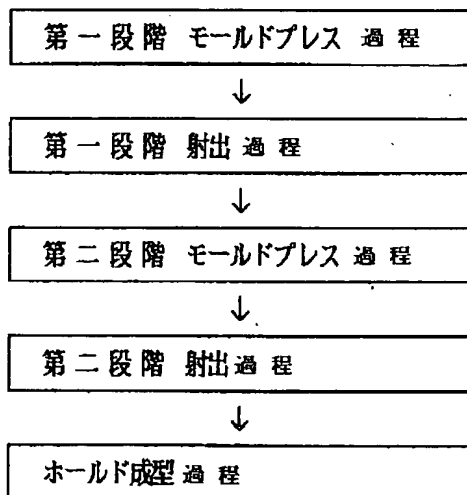 第一段階 モールドプレス 過程
↓
第一段階 射出過程
↓
第二段階 モールドプレス 過程
↓
第二段階 射出過程
↓
ホールド成型過程